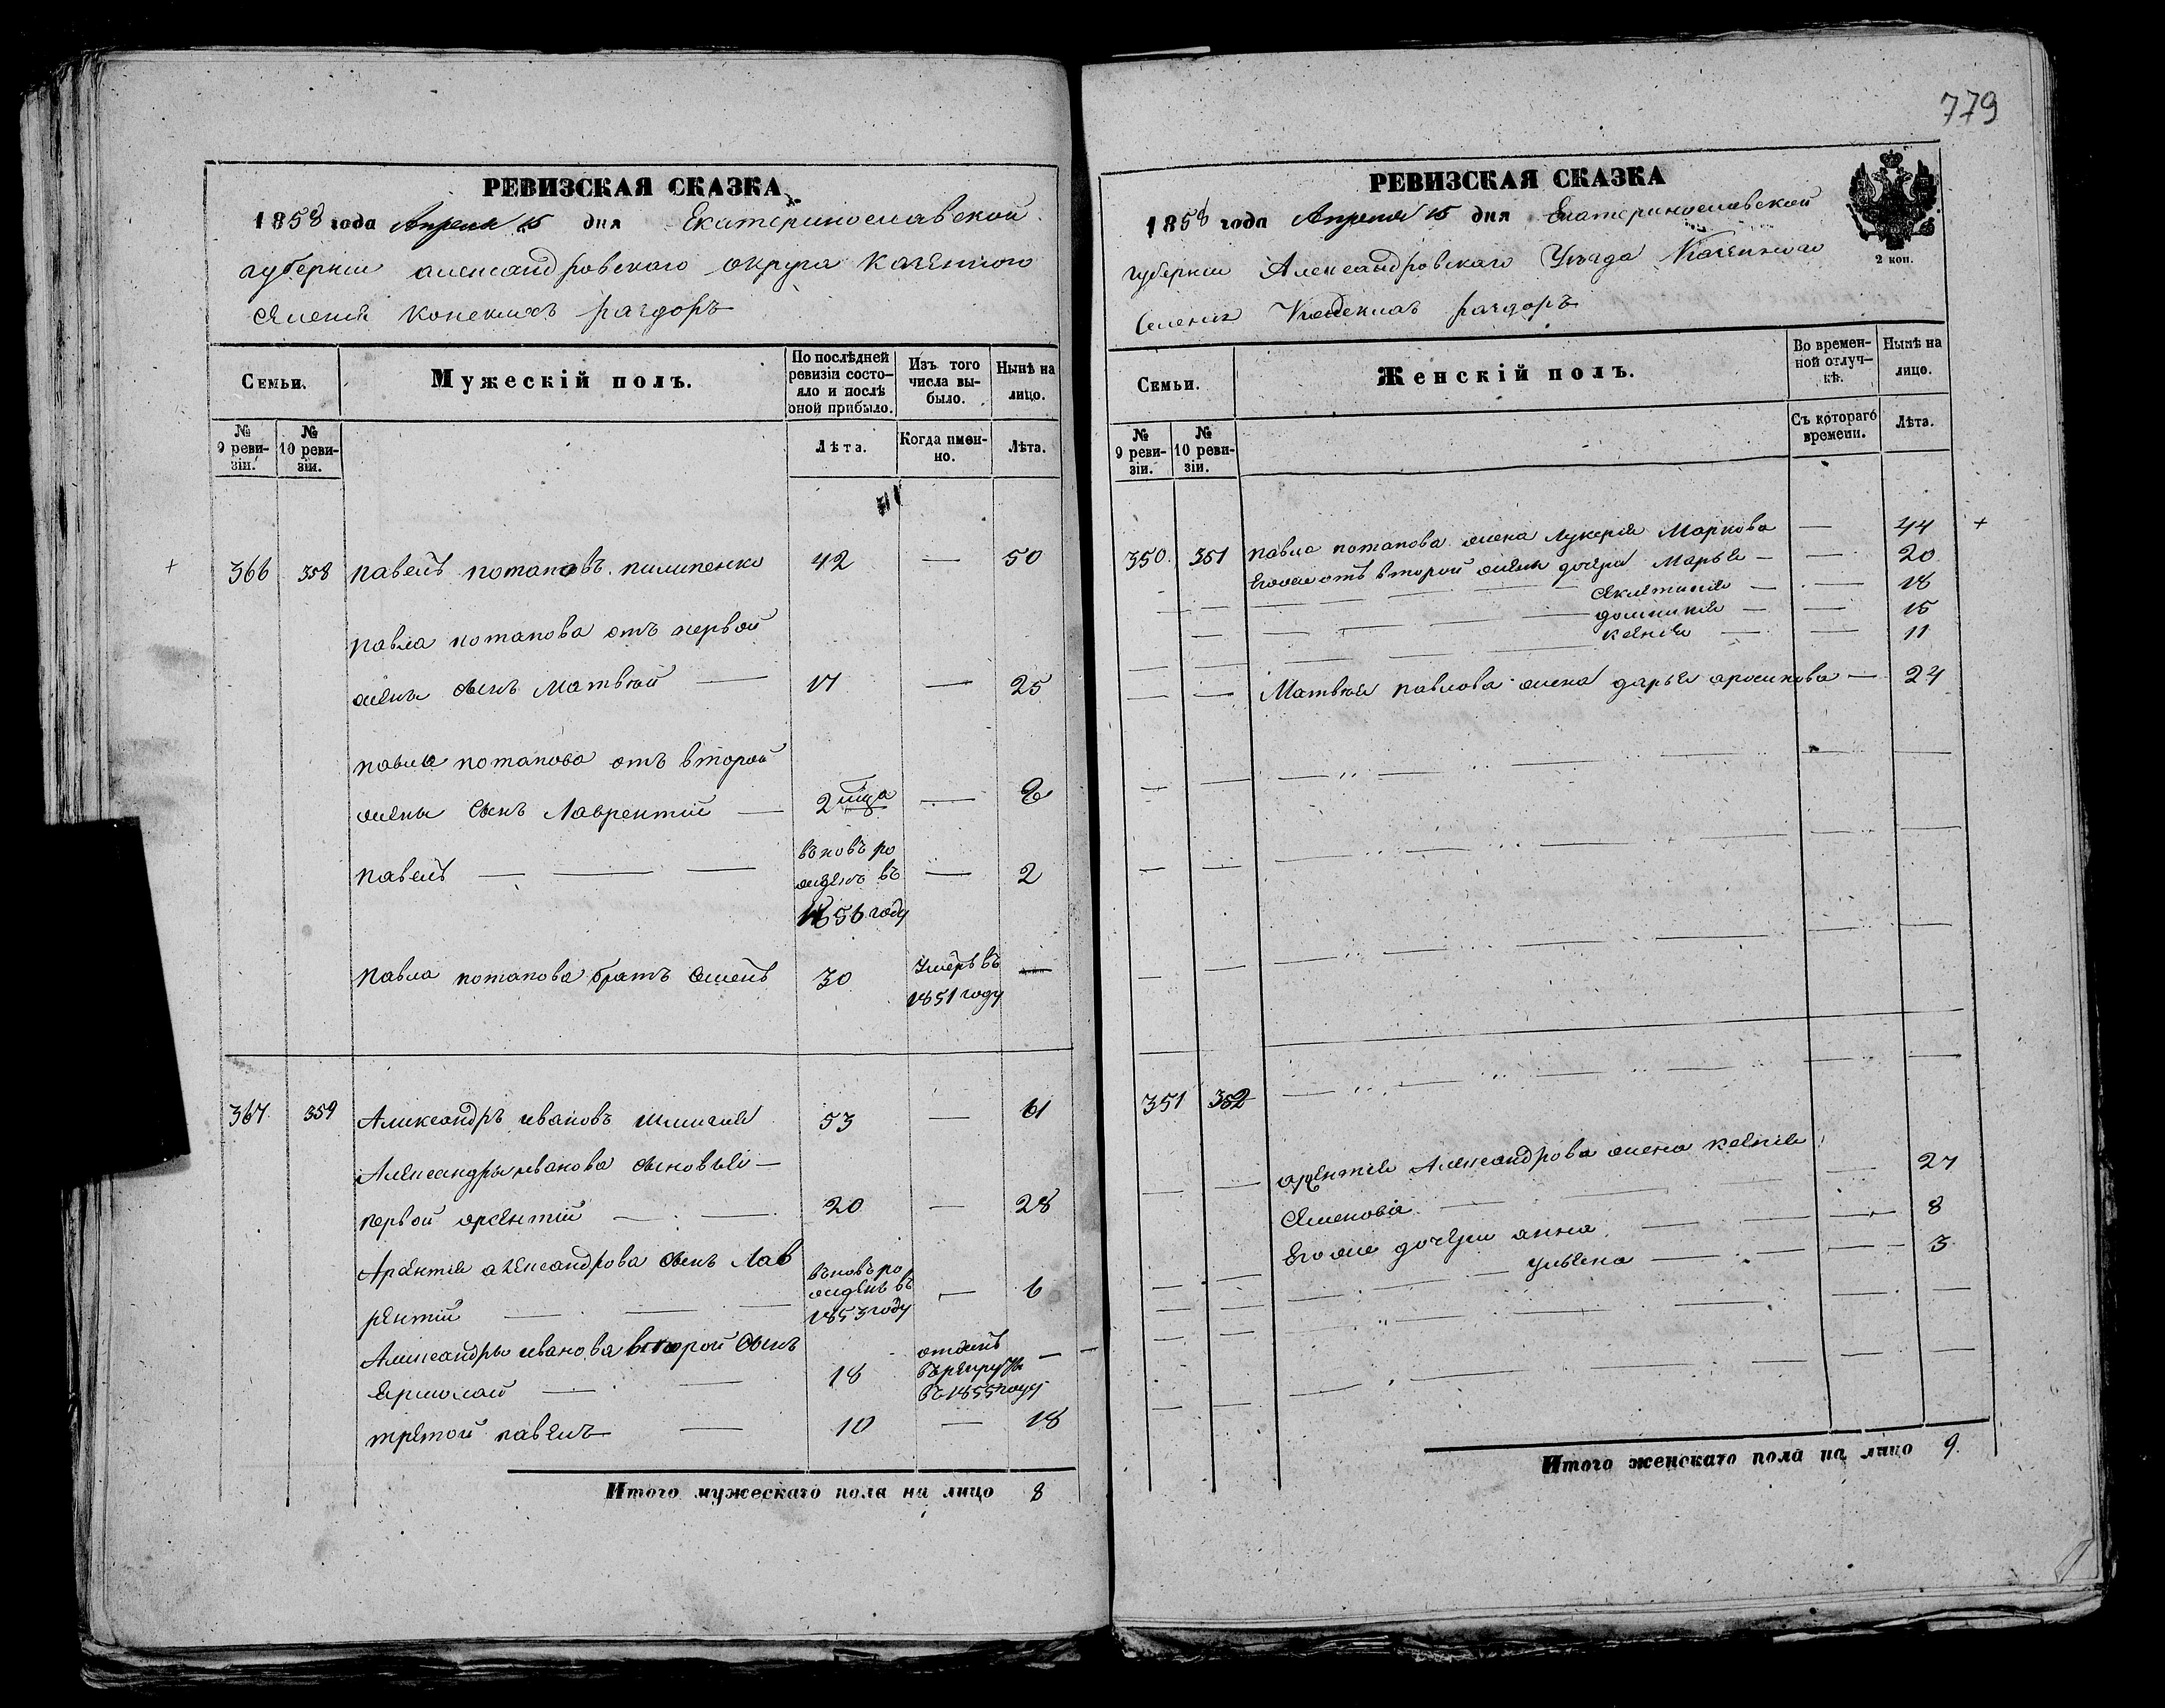 779
РЕВИЗСКАЯ СКАЗКА
1858 года Апреля 15 дня Екатеринославской
губернии александровского округа казенного
селения конекихъ раздоръ
Семьи.
Мужескій полъ.
По послѣдней ревизіи состояло и послѣ оной прибыло.
Изъ того числа выбыло.
Нынѣ на лицо.
№ 9 ревизіи.
№ 10 ревизіи.
Лѣта.
Когда именно.
Лѣта.
+ 366 358 павелъ потаповъ пилипенко 42 — 50
павла потапова отъ первой
жены сынъ Матвѣй — 17 — 25
павла потапова отъ второй
жены сынъ Лаврентій — 2 мца —
павелъ — — — вновь рожденъ въ 1856 году — 2
павла потапова братъ семенъ 30 Умеръ въ 1851 году —
367 359 Александръ ивановъ 53 — 61
Александры иванова сыновья —
первой арсентій — — 20 — 28
Арсентія александрова сынъ Лав
рентій — — — вновь рожденъ въ 1853 году — 6
Александры иванова второй сынъ
Ермолай — — 18 отданъ въ рекруты въ 1855 году —
третой павелъ — 10 — 18
Итого мужескаго пола на лицо 8
РЕВИЗСКАЯ СКАЗКА
1858 года Апреля 15 дня Екатеринославской
губернии Александровскаго Уѣзда Казеннаго
Селения раздоръ
2 коп.
Семьи.
Женскій полъ.
Во временной отлучкѣ.
Нынѣ на лицо.
№ 9 ревизіи.
№ 10 ревизіи.
Съ котораго времени.
Лѣта.
350 351 павла потапова жена Лукерія Маркова — 44 +
Егоже отъ второй жены дочери Марья — — 20
— — — — — — — — 18
— — — — — домникія — — 15
— — — — — ксенія — — 11
— — Матвѣя павлова жена дарья — 24
351 352
— — арсентія Александрова жена ксенія
Семенова — — — 27
Егоже дочери анна — — — 8
— — — — ульяна — — — 3
Итого женскаго пола на лицо 9